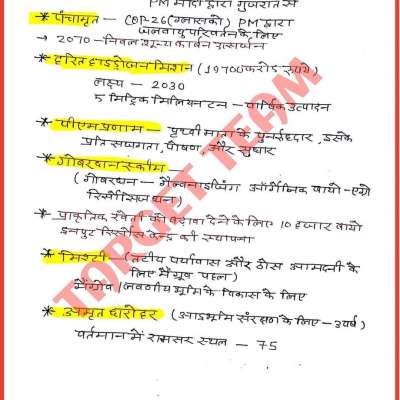 PM मोदी द्वारा गुजरात से
* पंचामृत - COP-26(ग्लासको) PM द्वारा
जलवायु परिवर्तन के लिए
→ 2070 - निवल शून्य कार्बन उत्सर्जन
* हरित हाइड्रोजन मिशन (19700 करोड़ रुपये)
लक्ष्य - 2030
5 मिट्रिक मिलियन टन - वार्षिक उत्पादन
* पीएम प्रणाम - पृथ्वी माता के पुनरुद्धार, इसके
प्रति सजगता, पोषण, और सुधार
* गोबरधन स्कीम -
(गोबरधन - गैल्वनाइजिंग ऑर्गेनिक बायो-एग्रो
रिसोर्सिस धन)
* प्राकृतिक खेती को बढ़ावा देने के लिए 10 हजार बायो
इनपुट रिसोर्स केन्द्र की स्थापना
* मिश्टी - (तटीय पर्यावास और ठोस आमदनी के
लिए मैंग्रूव पहल)
मैंग्रोव / लवणीय भूमि के विकास के लिए
* अमृत धरोहर (आर्द्रभूमि संरक्षण के लिए - 3 वर्ष)
वर्तमान में रामसर स्थल - 75
TARGET TEAM